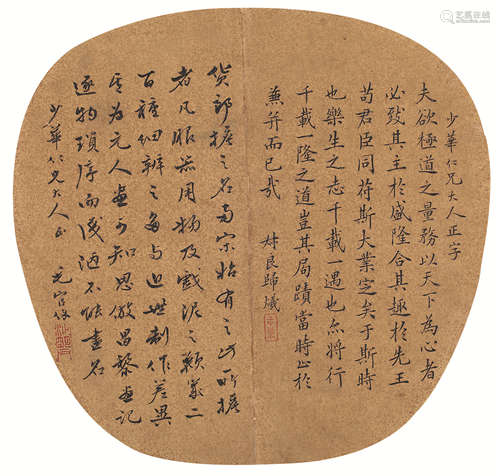 少華仁兄大人正字
夫欲極道之量務以天下為心者
必致其主於盛隆合其趣於先王
苟君臣同符斯大業定矣于斯時
也樂生之志千載一遇也亦將行
千載一隆之道豈其局蹟當時止於
兼并而已哉
貨郎擔之名南宋始有之此所擔
者凡服器用物及戲泥之類二
百種細辨之每与近世制作差異
為元人畫可知思倣昌黎画記
逐物瑣序而淺陋不能盡名
少華仁兄大人正